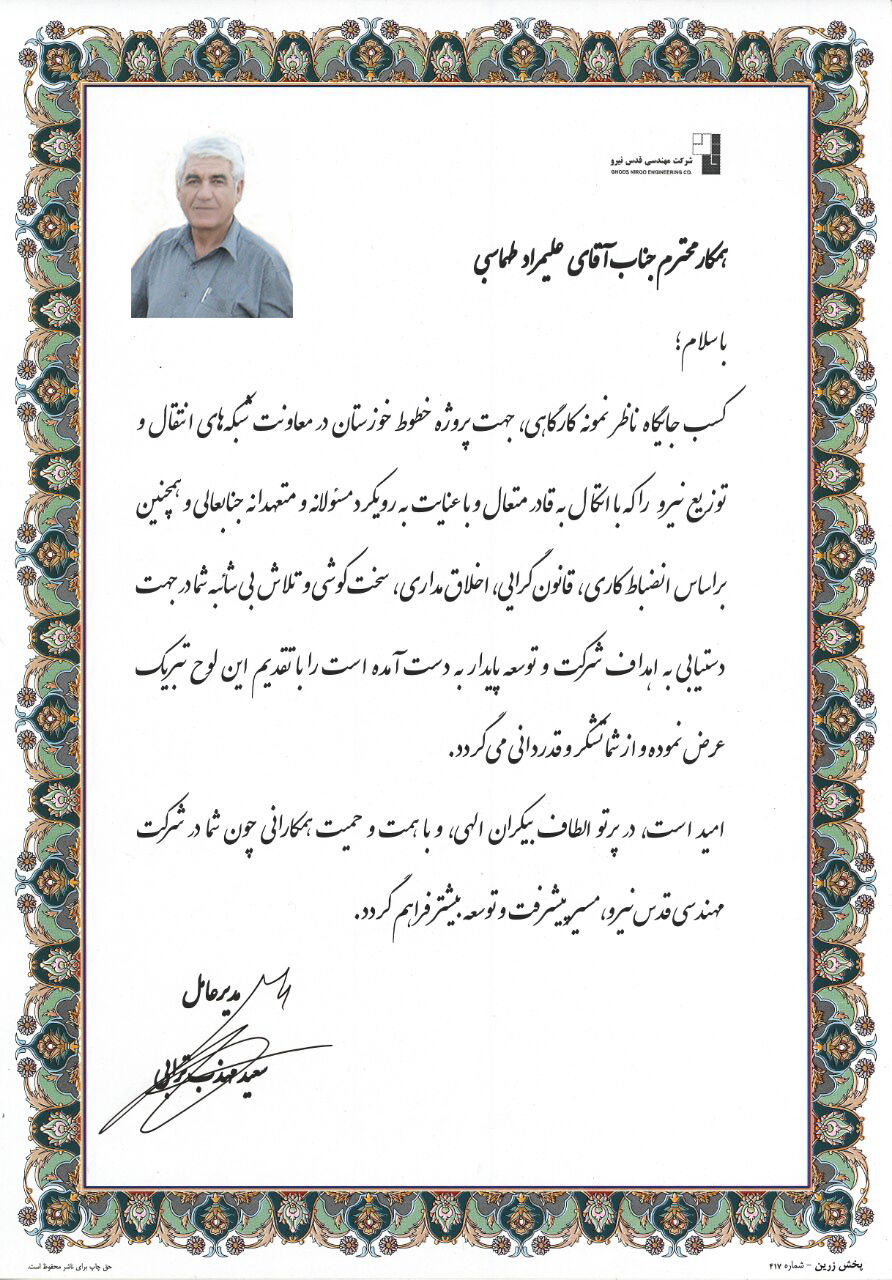 شرکت مهندسی قدس نیرو
GHODS NIROO ENGINEERING CO.
همکار محترم جناب آقای علیمراد طهماسبی
با سلام؛
کسب جایگاه ناظر نمونه کارگاهی، جهت پروژه خطوط خوزستان در معاونت شبکه های انتقال و
توزیع نیرو را که با اتکال به قادر متعال و با عنایت به رویکرد مسئولانه و متعهدانه جنابعالی و همچنین
براساس انضباط کاری، قانون گرایی، اخلاق مداری، سخت کوشی و تلاش بی شائبه شما در جهت
دستیابی به اهداف شرکت و توسعه پایدار به دست آمده است را با تقدیم این لوح تبریک
عرض نموده و از شما تشکر و قدردانی می گردد.
امید است، در پرتو الطاف بیکران الهی، و با همت و حمیت همکارانی چون شما در شرکت
مهندسی قدس نیرو، مسیر پیشرفت و توسعه بیشتر فراهم گردد.
مدیرعامل
سعید مهذب ترابی
پخش زرین - شماره ۴۱۷
حق چاپ برای ناشر محفوظ است.